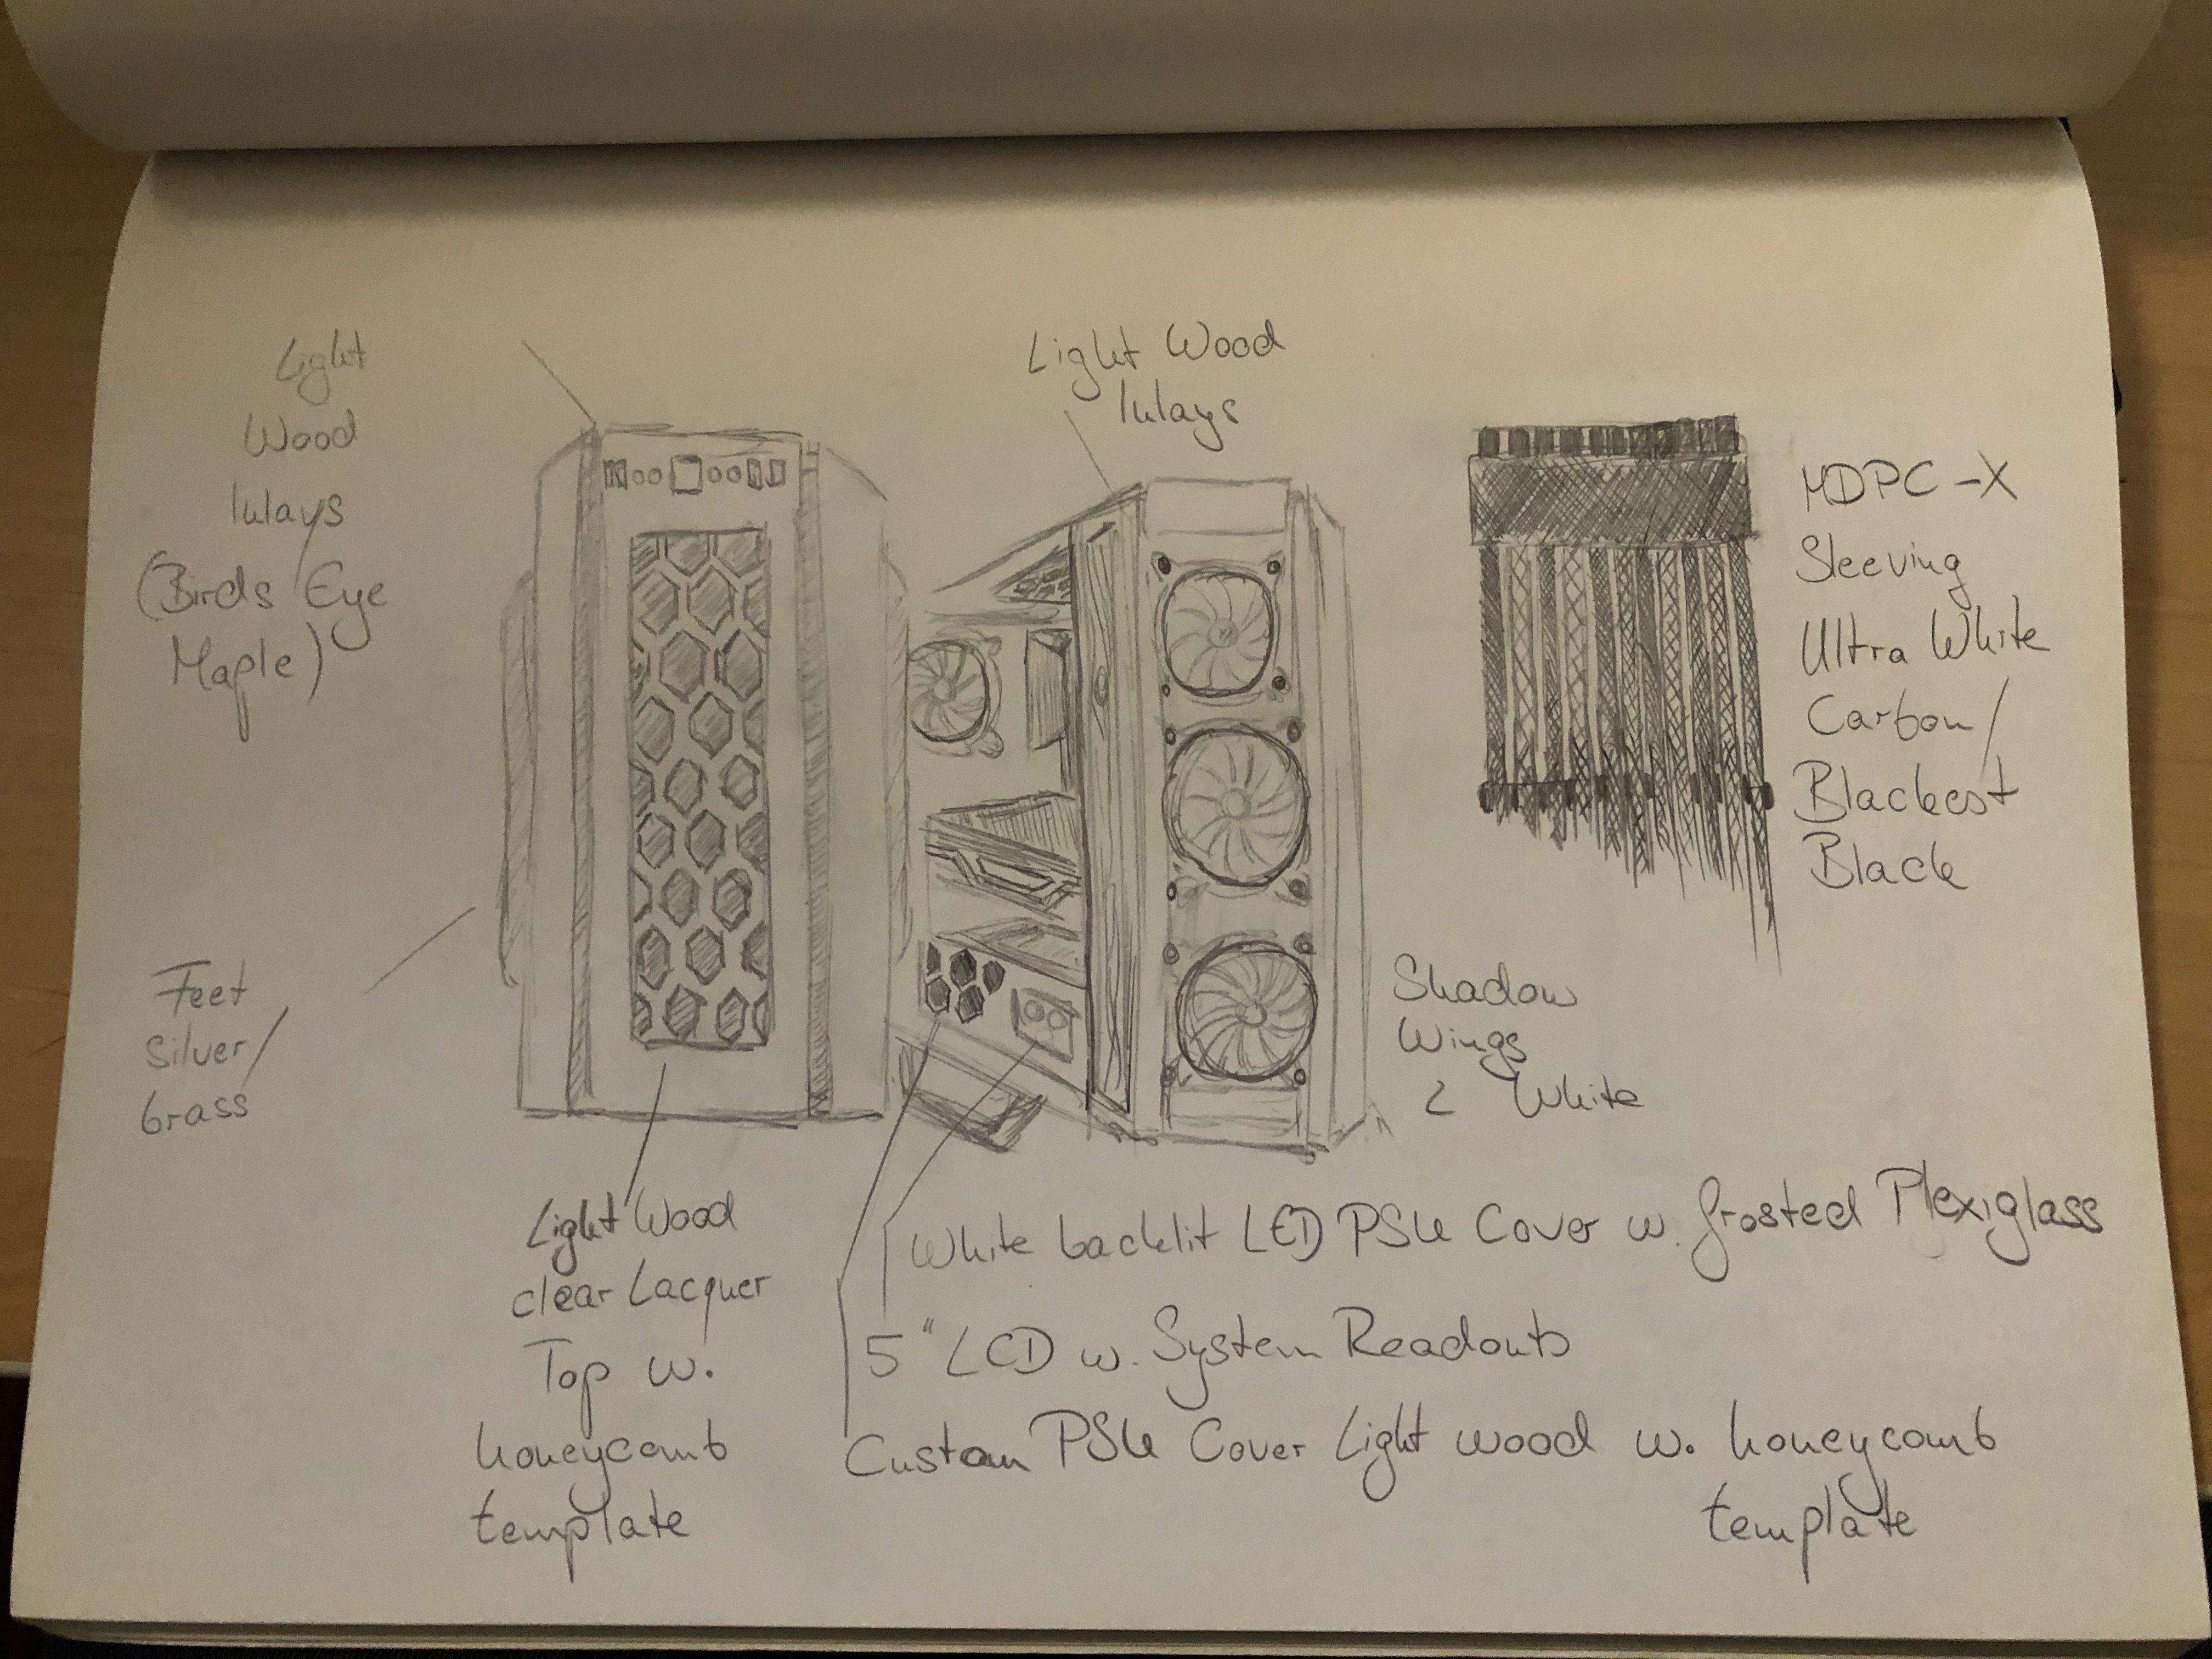 Light
Wood
Inlays
(Birds Eye
Maple)
Light Wood
Inlays
MDPC-X
Sleeving
Ultra White
Carbon/
Blackest
Black
Feet
Silver/
brass
Shadow
Wings
2 White
Light Wood
clear Lacquer
Top w.
honeycomb
template
White backlit LED PSU Cover w. frosted Plexiglass
5" LCD w. System Readouts
Custom PSU Cover Light wood w. honeycomb
template